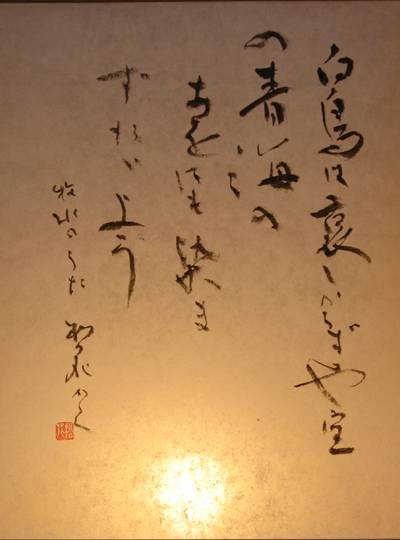 白鳥は哀しからずや空
の青海の
あをにも染ま
ずたゞよう
牧水のうた かく